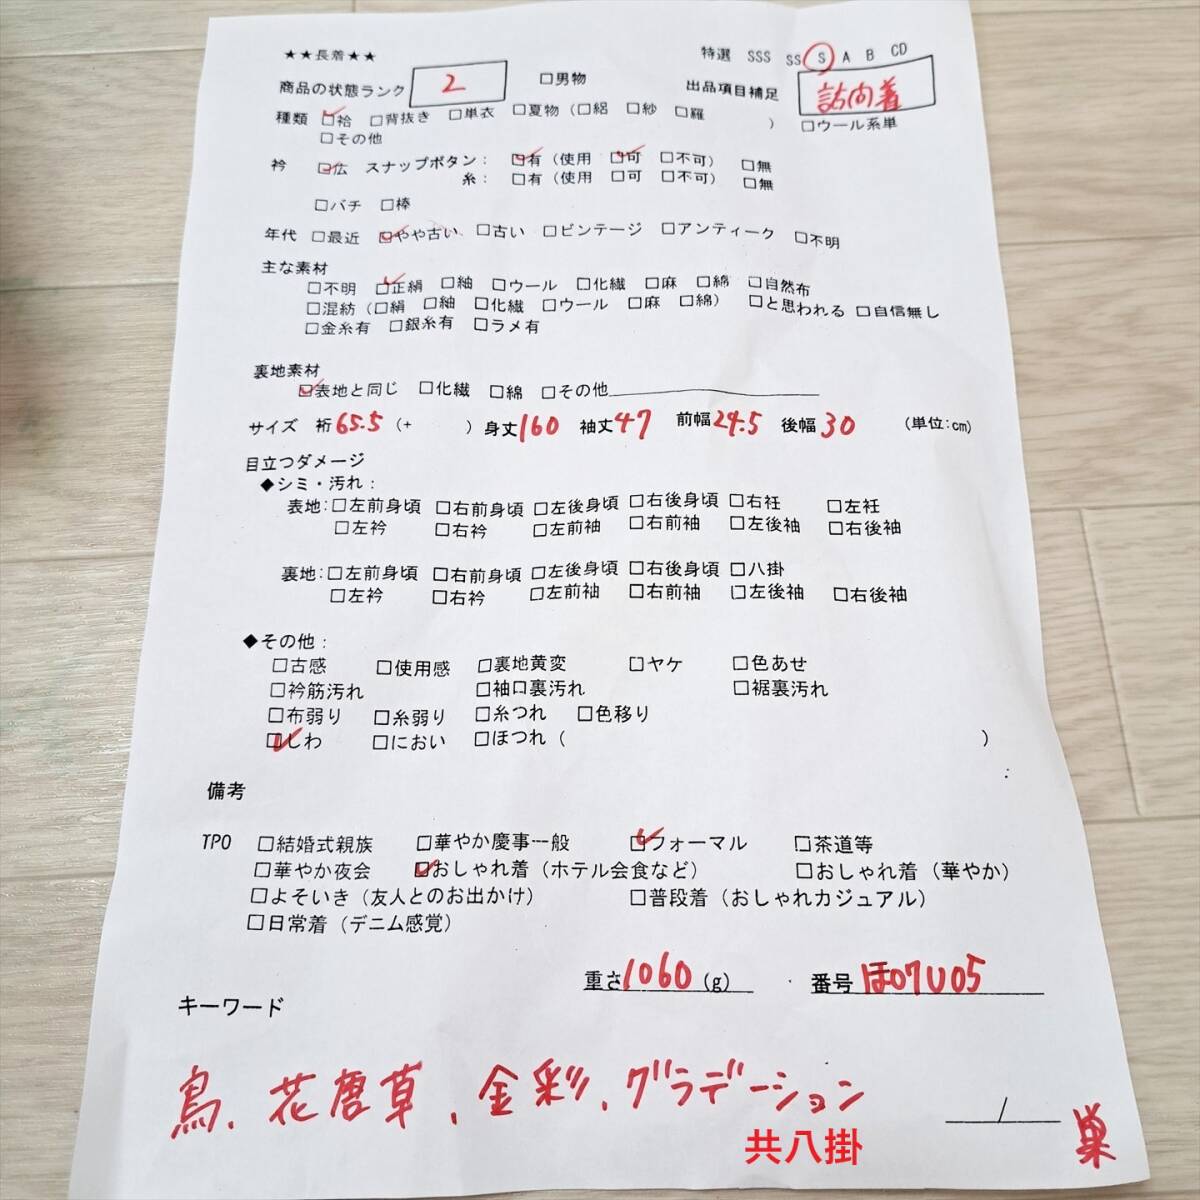 ★★長着★★ 特選 SSS SS S A B CD
商品の状態ランク 2 □男物 出品項目補足 訪問着
種類 ☑袷 □背抜き □単衣 □夏物(□絽 □紗 □羅 ) □ウール系単
□その他
衿 ☑広 スナップボタン: ☑有(使用 ☑可 □不可) □無
糸: □有(使用 □可 □不可) □無
□バチ □棒
年代 □最近 ☑やや古い □古い □ビンテージ □アンティーク □不明
主な素材
□不明 ☑正絹 □紬 □ウール □化繊 □麻 □綿 □自然布
□混紡(□絹 □紬 □化繊 □ウール □麻 □綿) □と思われる □自信無し
□金糸有 □銀糸有 □ラメ有
裏地素材
☑表地と同じ □化繊 □綿 □その他
サイズ 裄65.5(+ )身丈160 袖丈47 前幅24.5 後幅30 (単位:cm)
目立つダメージ
◆シミ・汚れ:
表地:□左前身頃 □右前身頃 □左後身頃 □右後身頃 □右衽 □左衽
□左衿 □右衿 □左前袖 □右前袖 □左後袖 □右後袖
裏地:□左前身頃 □右前身頃 □左後身頃 □右後身頃 □八掛
□左衿 □右衿 □左前袖 □右前袖 □左後袖 □右後袖
◆その他:
□古感 □使用感 □裏地黄変 □ヤケ □色あせ
□衿筋汚れ □袖口裏汚れ □裾裏汚れ
□布弱り □糸弱り □糸つれ □色移り
☑しわ □におい □ほつれ( )
備考
TPO □結婚式親族 □華やか慶事一般 ☑フォーマル □茶道等
□華やか夜会 ☑おしゃれ着(ホテル会食など) □おしゃれ着(華やか)
□よそいき(友人とのお出かけ) □普段着(おしゃれカジュアル)
□日常着(デニム感覚)
重さ1060(g) 番号ほ07U05
キーワード
鳥、花唐草、金彩、グラデーション
共八掛